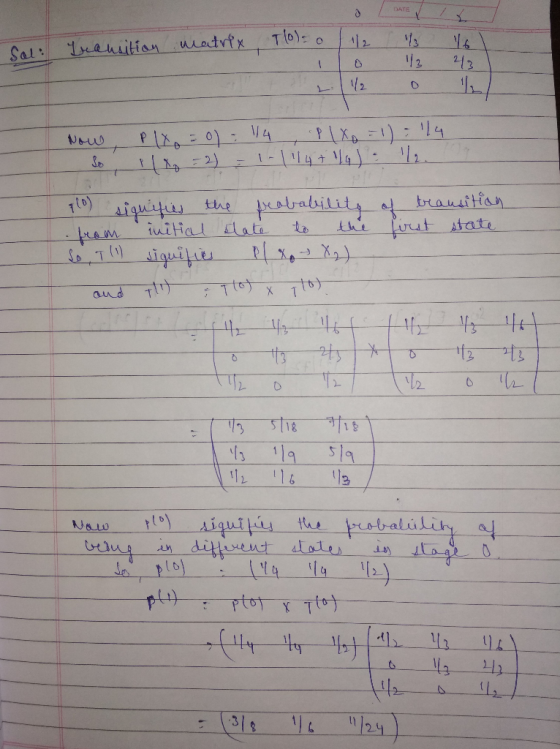 0 1 2
Sol: Transition matrix, T(0) = 0 ( 1/2 1/3 1/6 )
1 ( 0 1/3 2/3 )
2 ( 1/2 0 1/2 )
Now, P(X0 = 0) = 1/4, P(X0 = 1) = 1/4
So, P(X0 = 2) = 1-(1/4+1/4) = 1/2.
T(0) signifies the probability of transition
from initial state to the first state
So, T(1) signifies P(X0 → X2)
and T(1) = T(0) × T(0)
= ( 1/2 1/3 1/6 ) ( 1/2 1/3 1/6 )
( 0 1/3 2/3 ) × ( 0 1/3 2/3 )
( 1/2 0 1/2 ) ( 1/2 0 1/2 )
= ( 1/3 5/18 7/18 )
( 1/3 1/9 5/9 )
( 1/2 1/6 1/3 )
Now P(0) signifies the probability of
being in different states in stage 0.
So, P(0) = (1/4 1/4 1/2)
P(1) = P(0) × T(0)
= (1/4 1/4 1/2) ( 1/2 1/3 1/6 )
( 0 1/3 2/3 )
( 1/2 0 1/2 )
= (3/8 1/6 11/24)